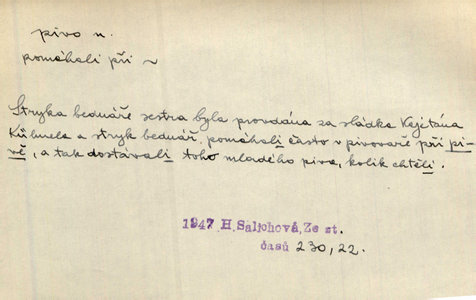 pivo n.
pomáhali při ~
Stryka bednáře sestra byla provdána za sládka Kajetána
Kühnela a stryk bednář pomáhali často v pivovaře při pi-
vě, a tak dostávali toho mladého piva, kolik chtěli.
1947 H. Saljohová, Ze st.
časů 230, 22.